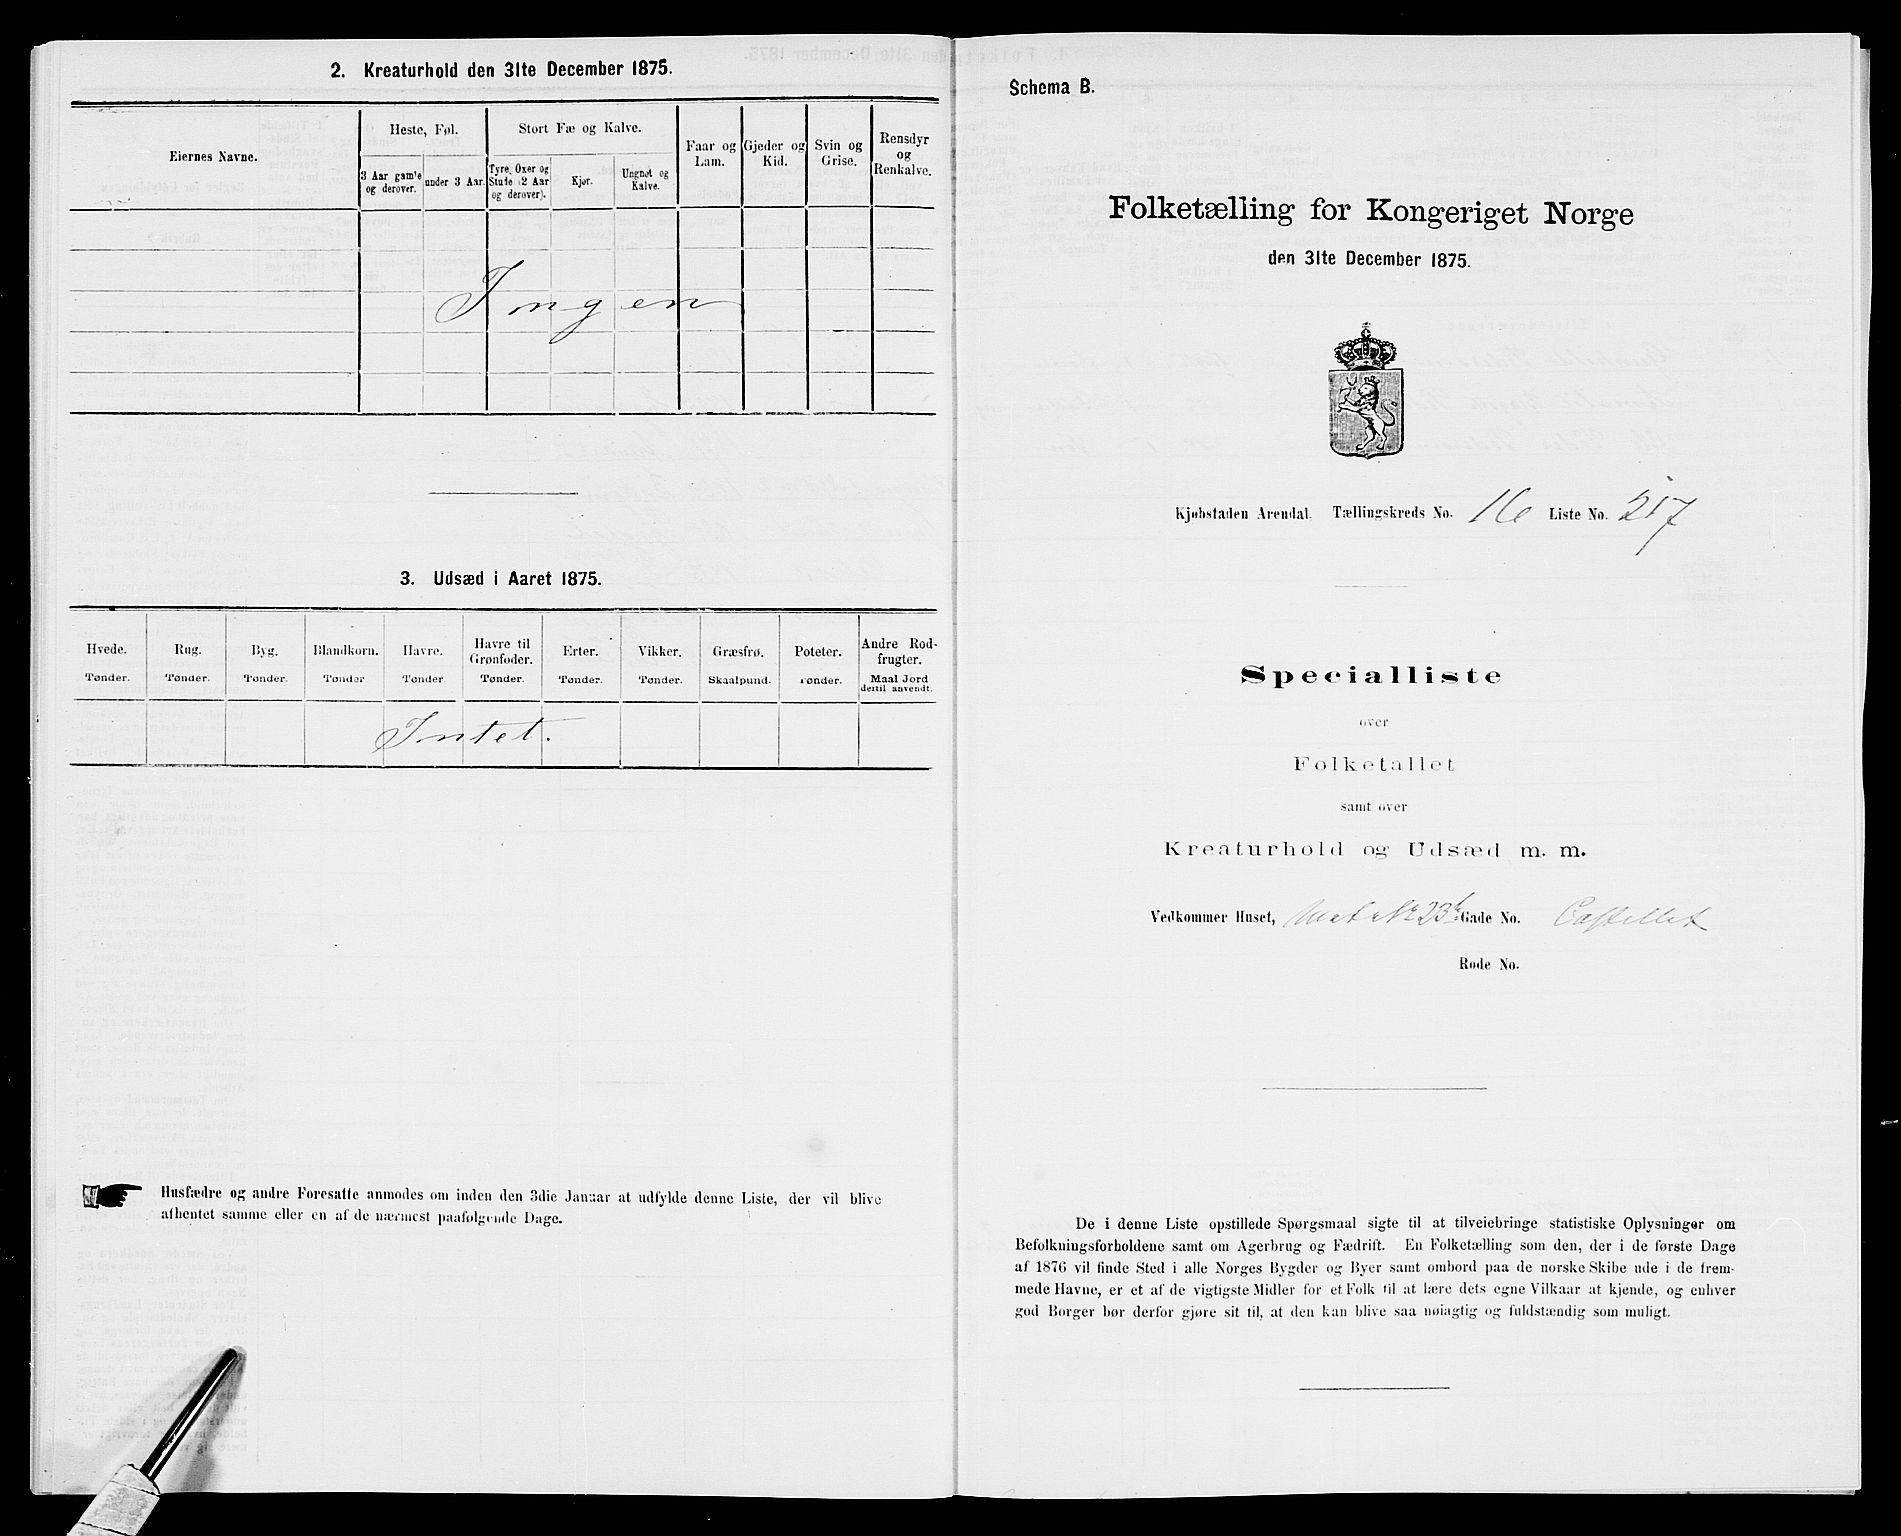 2. Kreaturhold den 31te December 1875.
Eiernes Navne.
Heste, Føl.
3 Aar gamle og derover.
under 3 Aar.
Stort Fæ og Kalve.
Tyre, Oxer og Stude (2 Aar og derover).
Kjør.
Ungnøt og Kalve.
Faar og Lam.
Gjeder og Kid.
Svin og Grise.
Rensdyr og Renkalve.
Ingen
3. Udsæd i Aaret 1875.
Hvede. Tønder.
Rug. Tønder.
Byg. Tønder.
Blandkorn. Tønder
Havre. Tønder.
Havre til Grønfoder. Tønder.
Erter. Tønder.
Vikker. Tønder.
Græsfrø. Skaalpund.
Poteter. Tønder.
Andre Rodfrugter. Maal Jord dertil anvendt.
Intet.
Husfædre og andre Foresatte anmodes om inden den 3die Januar at udfylde denne Liste, der vil blive
afhentet samme eller en af de nærmest paafølgende Dage.
Schema B.
Folketælling for Kongeriget Norge
den 31te December 1875.
Kjøbstaden Arendal. Tællingskreds No. 16 Liste No. 217
Specialliste
over
Folketallet
samt over
Kreaturhold og Udsæd m. m.
Vedkommer Huset, Mat No 23b Gade No. Castellet
Rode No.
De i denne Liste opstillede Spørgsmaal sigte til at tilveiebringe statistiske Oplysninger om
Befolkningsforholdene samt om Agerbrug og Fædrift. En Folketælling som den, der i de første Dage
af 1876 vil finde Sted i alle Norges Bygder og Byer samt ombord paa de norske Skibe ude i de frem-
mede Havne, er et af de vigtigste Midler for et Folk til at lære dets egne Vilkaar at kjende, og enhver
god Borger bør derfor gjøre sit til, at den kan blive saa nøiagtig og fuldstændig som muligt.